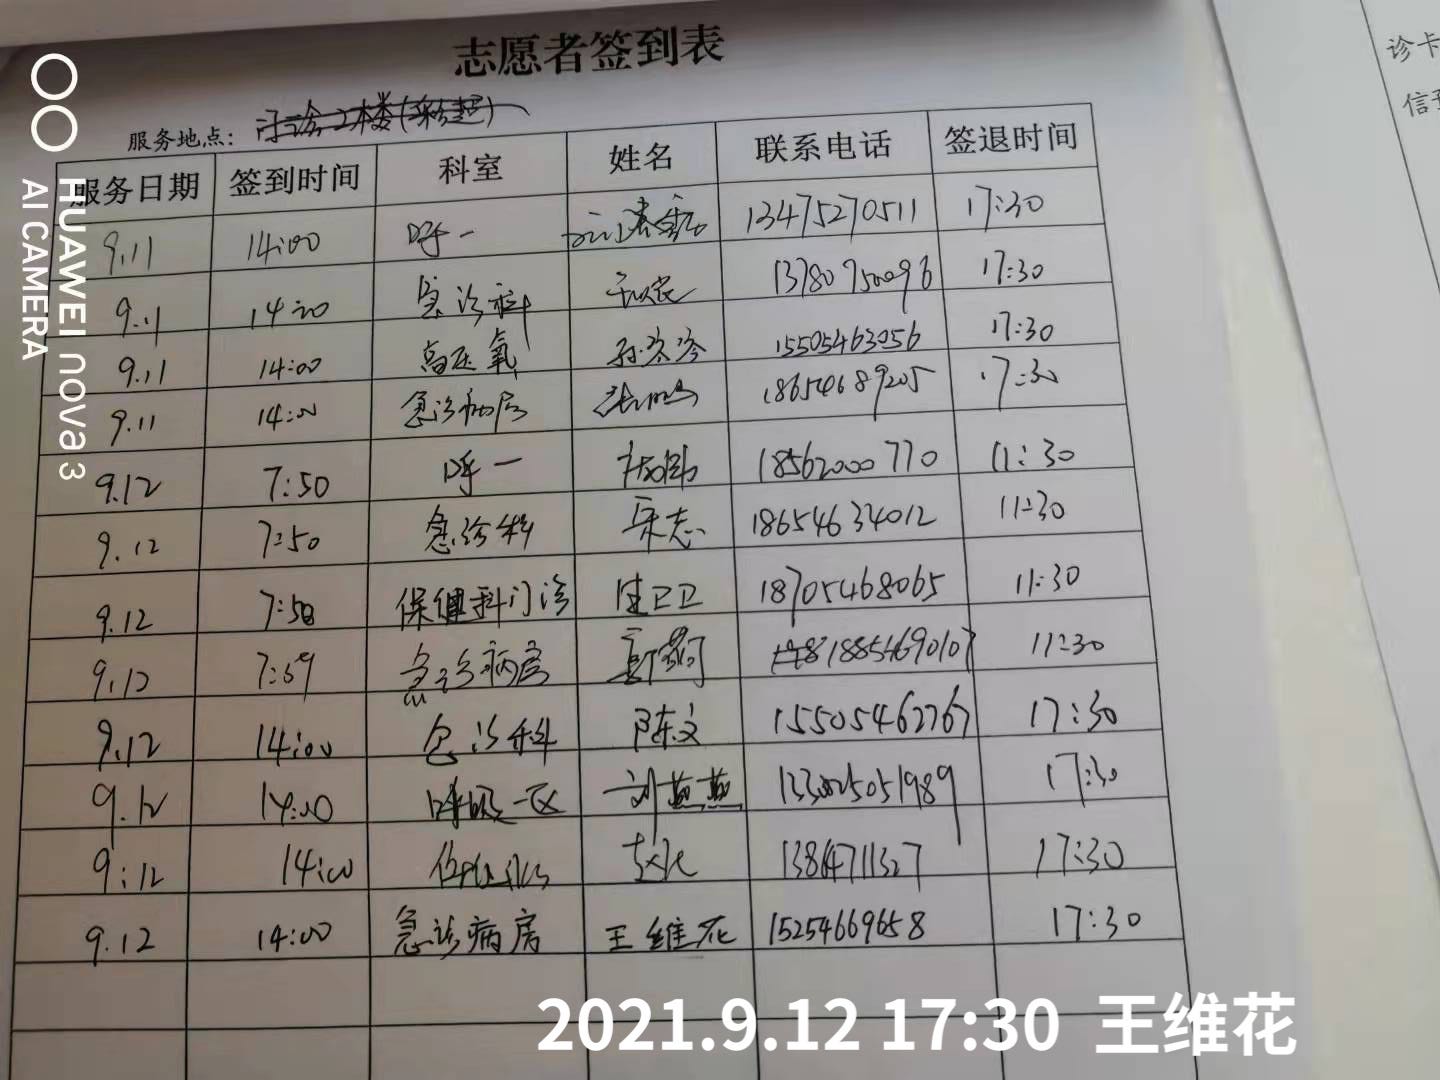 志愿者签到表
服务地点：门诊2楼(彩超)
服务日期 签到时间 科室 姓名 联系电话 签退时间
9.11 14:00 呼一 13475270511 17:30
9.11 14:00 急诊科 13780750096 17:30
9.11 14:00 高压氧 孙岑岑 15505463056 17:30
9.11 14:00 急诊病房 18654689205 17:30
9.12 7:50 呼一 18562000770 11:30
9.12 7:50 急诊科 宋志 18654634012 11:30
9.12 7:50 保健科门诊 生卫卫 18705468065 11:30
9.12 7:59 急诊病房 18854690107 11:30
9.12 14:00 急诊科 陈文 15505462767 17:30
9.12 14:00 呼吸一区 刘燕燕 17:30
9:12 14:00 13864711327 17:30
9.12 14:00 急诊病房 王维花 15254669658 17:30
诊卡
信
HUAWEI nova 3
AI CAMERA
2021.9.12 17:30 王维花